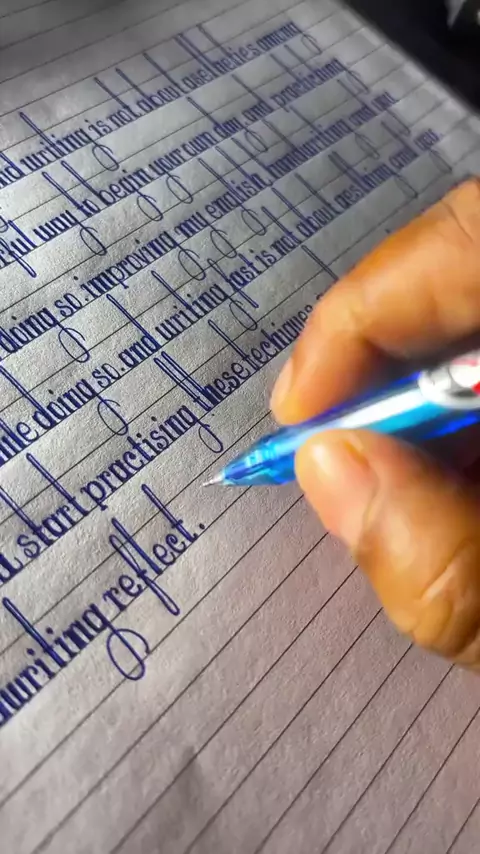 writing is not about aesthetics
way to begin your own day and practicing
doing so. improving my english handwriting and
while doing so. and writing fast is not about
start practising these techniques
writing reflect.